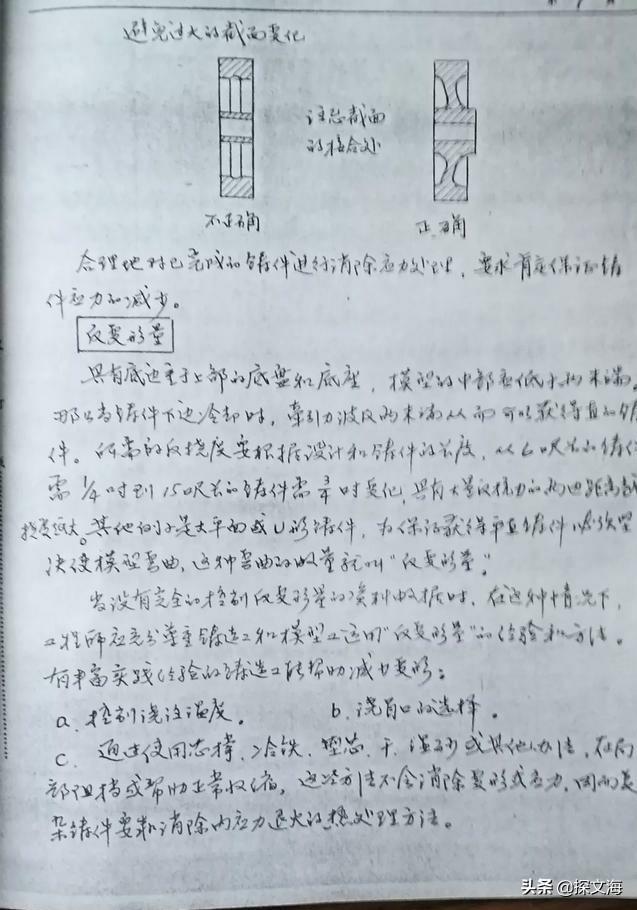 第 7 页
避免过大的截面变化
注意截面
的接合处
不正确
正确
合理地对已完成的铸件进行消除应力处理，要求肯定保证铸
件应力的减少。
反变形量
具有底边重于上部的底盘和底座，模型的中部应低于两末端。
那么当铸件下边冷却时，牵引力波及两末端从而可以获得直的铸
件。所需的反挠度要根据设计和铸件的长度，从6呎长的铸件
需1/4吋到15呎长的铸件需3/4吋变化，具有大量反抗力的两边距离
挠度大。其他例子是大平面或U形铸件，为保证获得平直铸件必须
决使模型弯曲，这种弯曲的数量就叫“反变形量”。
当没有完全的控制反变形量的资料数据时，在这种情况下，
工程师应充分尊重铸造工和模型工运用“反变形量”的经验和方法。
有丰富实践经验的铸造工能帮助减少变形：
a. 控制浇注温度。
b. 浇冒口的选择。
c. 通过使用芯撑、冷铁、型芯、干、湿砂或其他办法，在局
部阻挡或帮助正常收缩，这些方法不会消除变形或应力，因而复
杂铸件要求消除内应力退火的热处理方法。
头条 @探文海